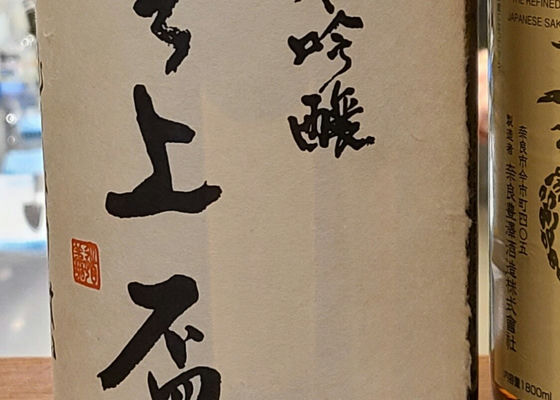 吟醸
上盃
THE REFINED
JAPANESE SAK
奈良市今市町四〇五
製造者 奈良豊澤酒造株式會社
内容量1800ml